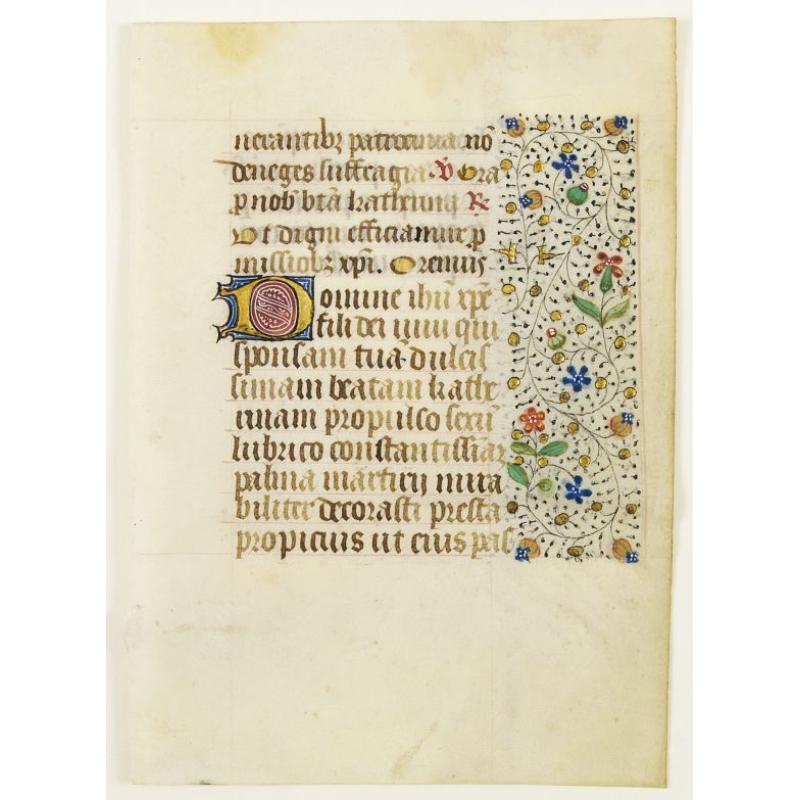 nerantibꝫ patrocinia nō
deneges suffragia ℣ Ora
ꝓ nob̄ btā katherina ℟
Vt digni efficiamur ꝓ
missiōbꝫ xpi. Oremus
Domine ihū xpe
fili dei uiui qui
sponsam tuā dulcis
simam beatam kathe
rinam propulso secū
lubrico constantissīa
palma martirij mira
biliter decorasti presta
propicius ut eius pas